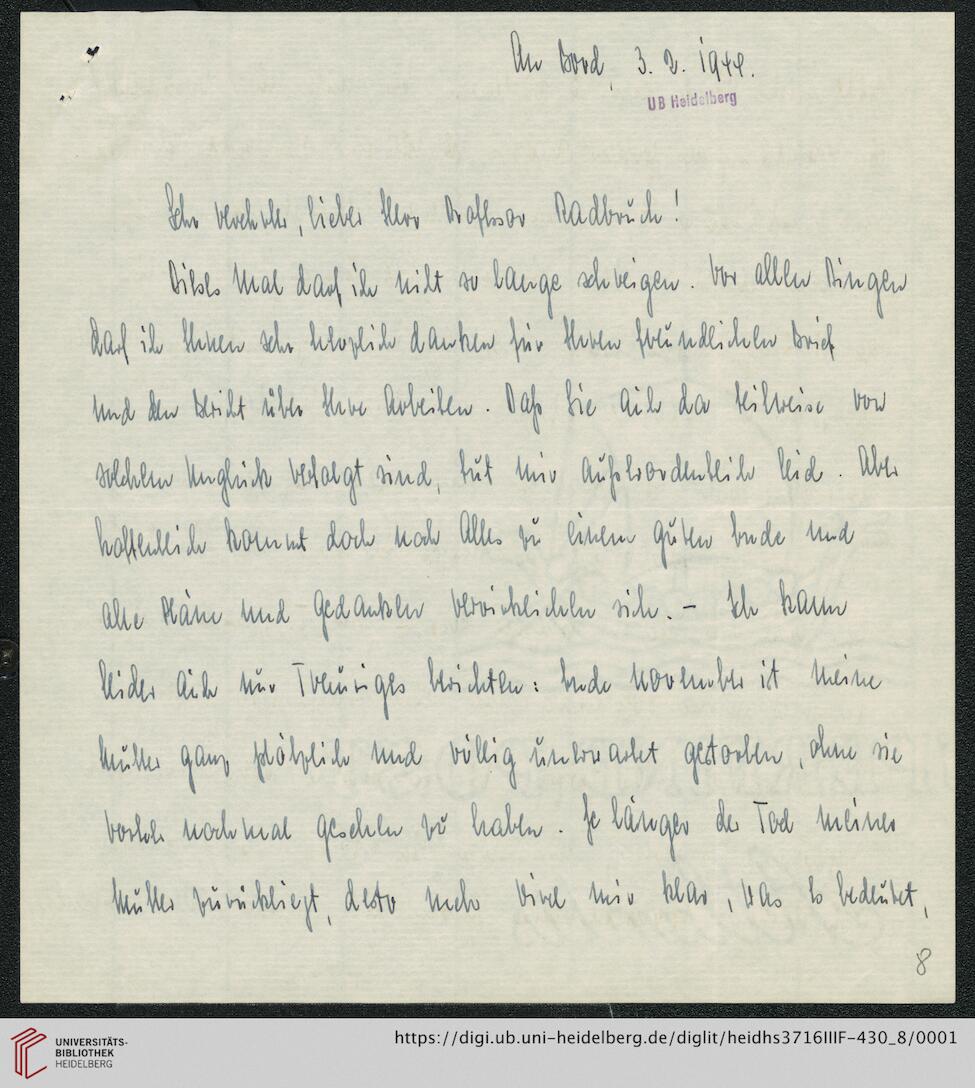 An Bord, 3. 2. 1944.
UB Heidelberg
Sehr verehrter, lieber Herr Professor Radbruch!
Dieses Mal darf ich nicht so lange schweigen. Vor allen Dingen
darf ich Ihnen sehr herzlich danken für Ihren freundlichen Brief
und den Bericht über Ihre Arbeiten. Daß Sie auch da teilweise von
solchem Unglück verfolgt sind, tut mir außerordentlich leid. Aber
hoffentlich kommt doch noch Alles zu einem guten Ende und
alle Pläne und Gedanken verwirklichen sich. – Ich kann
leider auch nur Trauriges berichten: Ende November ist meine
Mutter ganz plötzlich und völlig unerwartet gestorben, ohne sie
vorher noch mal gesehen zu haben. Je länger der Tod meiner
Mutter zurückliegt, desto mehr wird mir klar, was es bedeutet,
8
UNIVERSITÄTS-
BIBLIOTHEK
HEIDELBERG
https://digi.ub.uni-heidelberg.de/diglit/heidhs3716IIIF-430_8/0001